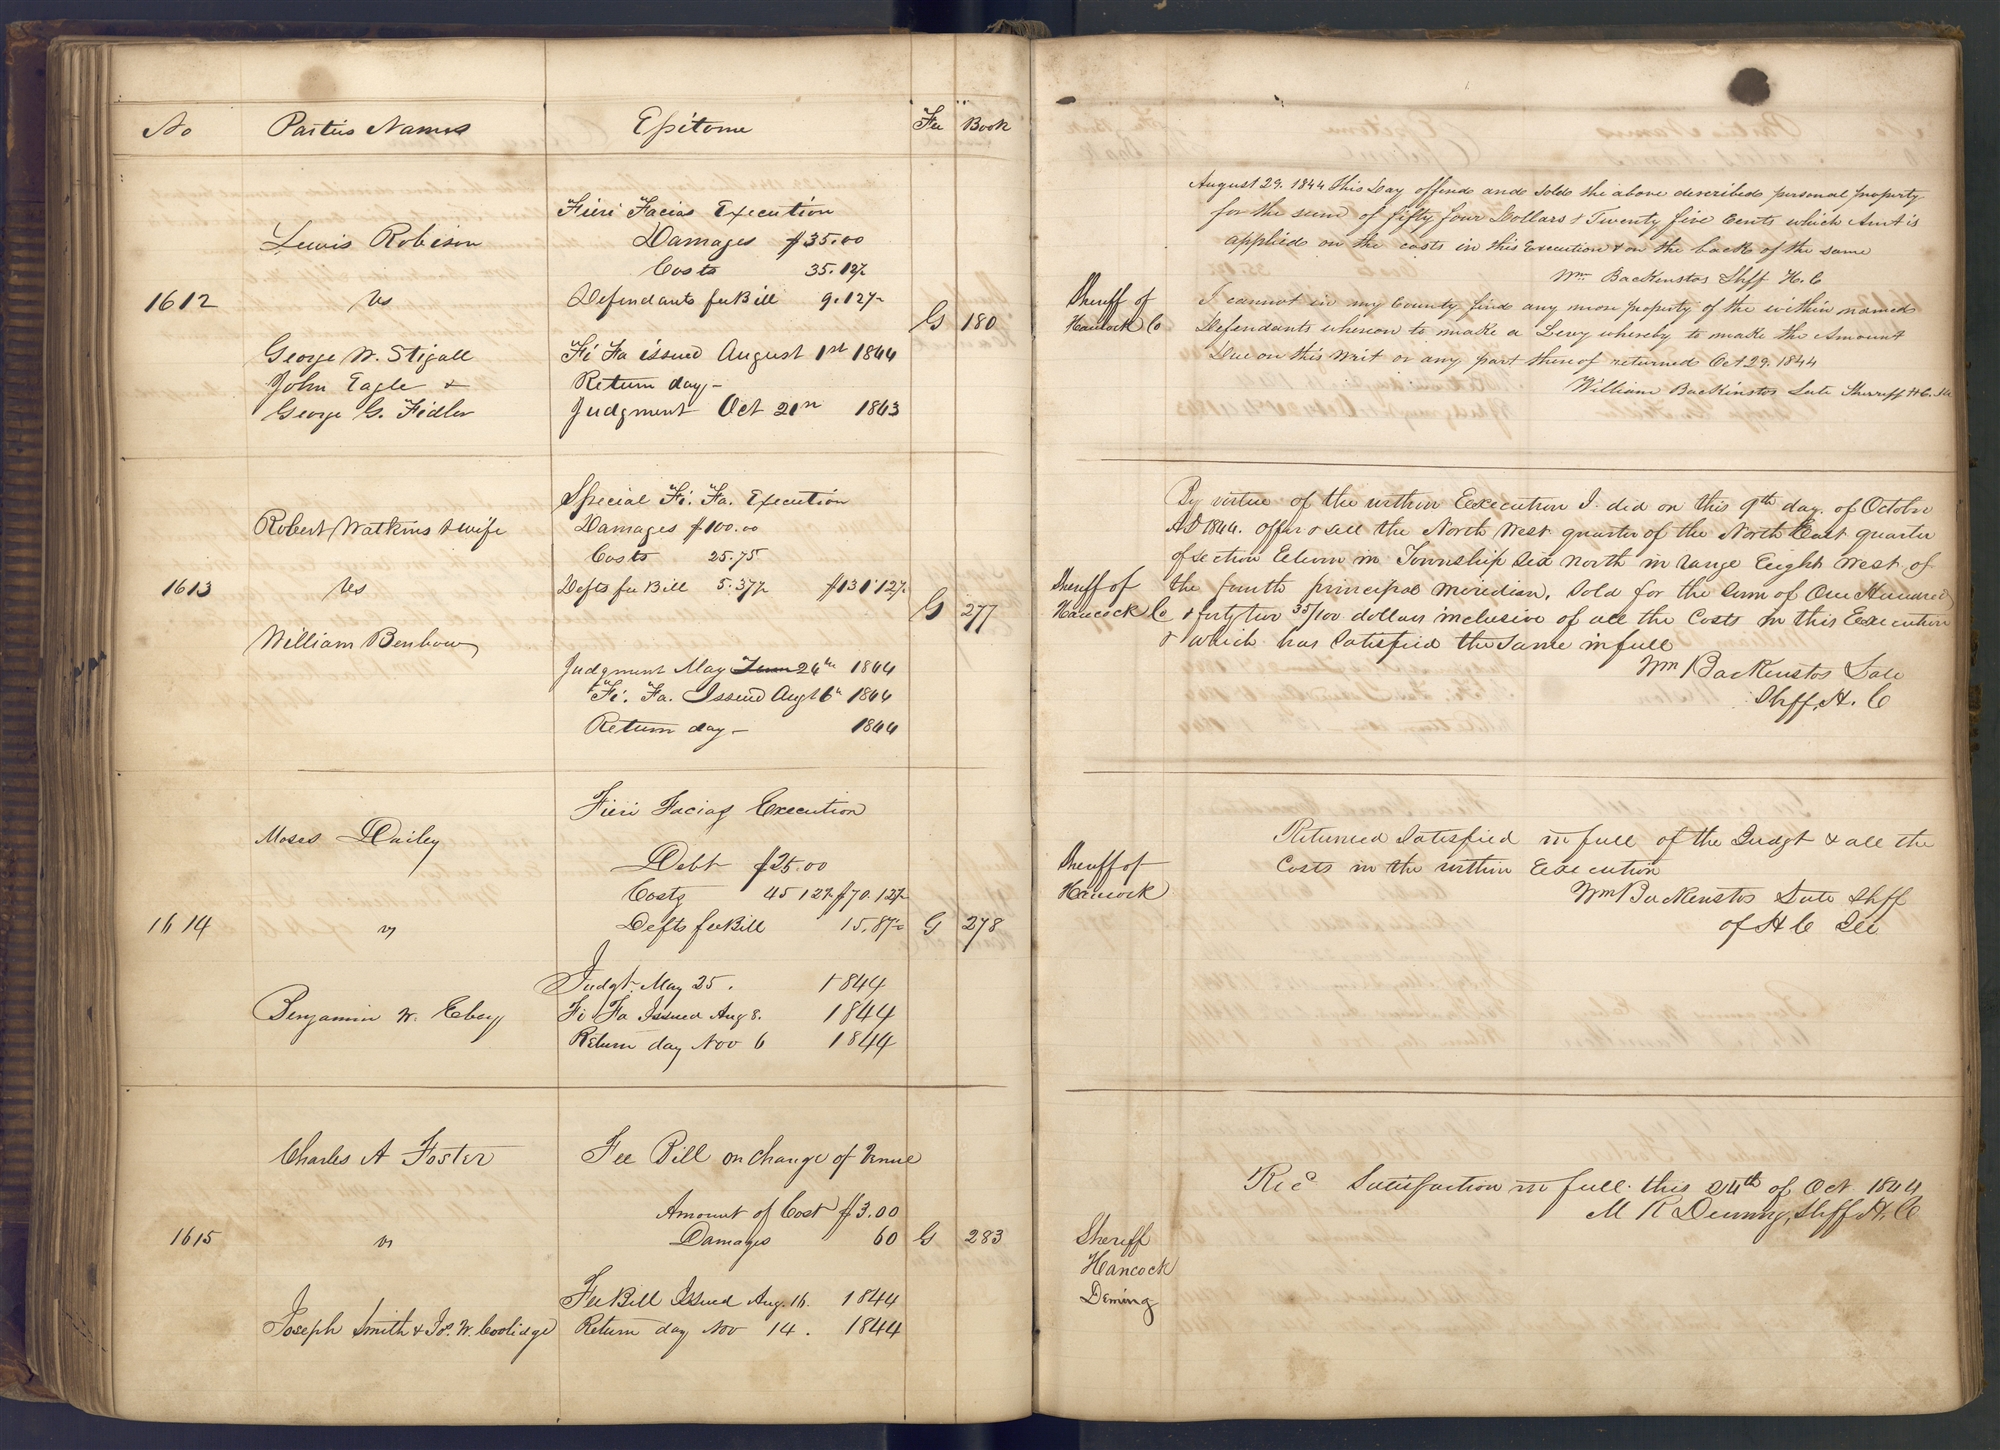 No Parties Names Epitome Fee Book
Fieri Facias Execution
Lewis Robison Damages $35.00
Costs 35.12½
1612 vs Defendants fee Bill 9.12½
G 180
George W. Stigall Fi Fa issued August 1st 1844
John Eagle & Return day –
George G. Fidler Judgment Oct 21st 1843
Special Fi. Fa. Execution
Robert Watkins & wife Damages $100.00
Costs 25.75
1613 vs Defts fee Bill 5.37½ $131.12½
G 277
William Benbow
Judgment May June 24th 1844
Fi. Fa. Issued Augt 6th 1844
Return day – 1844
Fieri Facias Execution
Moses Dailey
Debt $25.00
Costs 45 12½ $70.12½
1614 vs Defts fee Bill 15.87½ G 278
Judgt. May 25. 1844
Benjamin W. Eboy Fi Fa Issued Aug 8. 1844
Return day Nov 6 1844
Charles A Foster Fee Bill on change of Venue
Amount of Cost $3.00
1615 vs Damages 60 G 283
Fee Bill Issued Aug. 16. 1844
Joseph Smith & Jos. W. Coolidge Return day Nov 14. 1844
August 29. 1844 This Day offered and sold the above described personal property
for the sum of fifty four Dollars & Twenty five Cents which Amt is
applied on the costs in this Execution & on the back of the same
Wm Backenstos Shff H. C
Sheriff of
Hancock Co
I cannot in my County find any more property of the within named
Defendants whereon to make a Levy whereby to make the Amount
Due on this writ or any part thereof returned Oct 29. 1844
William Backinstos Late Sherriff H C. Ill
By virtue of the within Execution I did on this 9th day of October
AD 1844. offer & sell the North West quarter of the North East quarter
of section Eleven in Township six north in range Eight West of
Sheriff of
Hancock Co
the fourth principal meridian, sold for the sum of One Hundred
& forty two 35/100 dollars inclusive of all the costs in this Execution
& which has satisfied the same in full
Wm Backenstos Late
Shff. H. C
Sheriff of
Hancock
Returned satisfied in full of the Judgt & all the
costs in the within Execution
Wm Backenstos Late Shff
of H C Ill
Rec satisfaction in full this 24th of Oct 1844
M R Deming, Shff H. C
Sheriff
Hancock
Deming